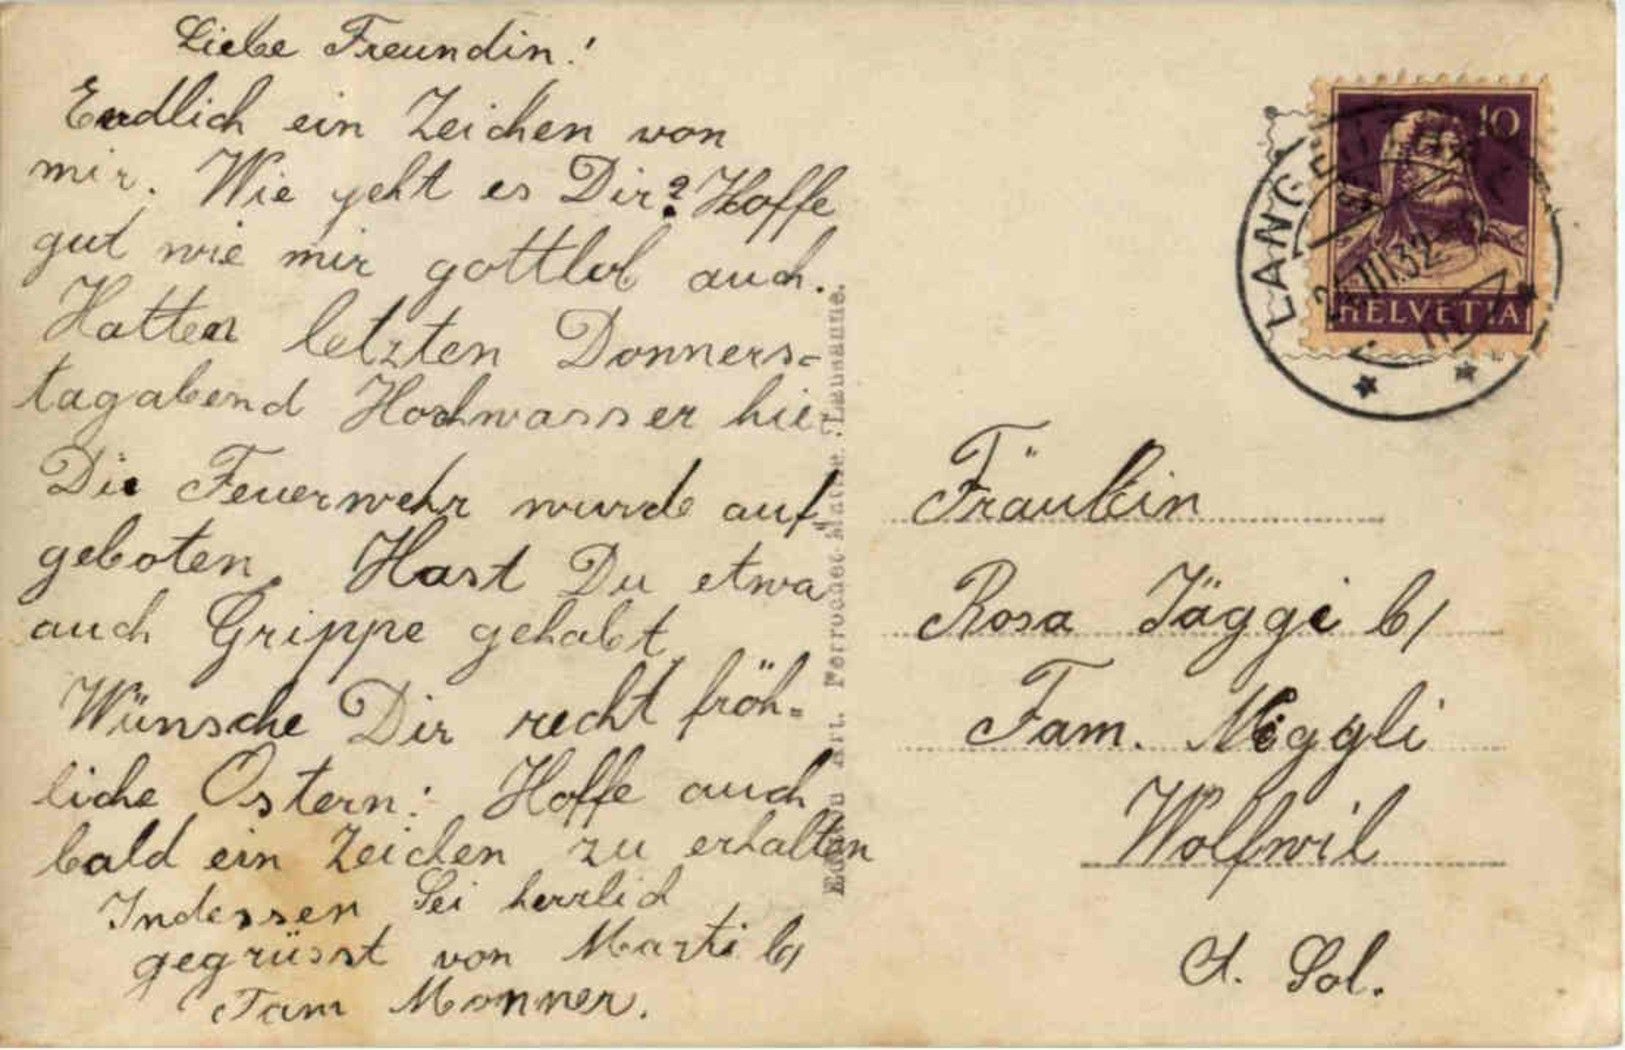 Liebe Freundin!
Endlich ein Zeichen von
mir. Wie geht es Dir? Hoffe
gut wie mir gottlob auch.
Hatten letzten Donners=
tagabend Hochwasser hie
Die Feuerwehr wurde auf=
geboten. Hast Du etwa
auch Grippe gehabt
Wünsche Dir recht fröh=
liche Ostern! Hoffe auch
bald ein Zeichen zu erhalten
Indessen Sei herzlich
gegrüsst von Marti b/
Fam
Art. Perrochet Lausanne.
10
HELVETIA
III.32
Fräulein
Rosa Jäggi b/
Fam. Niggli
Wolfwil
Ct. Sol.